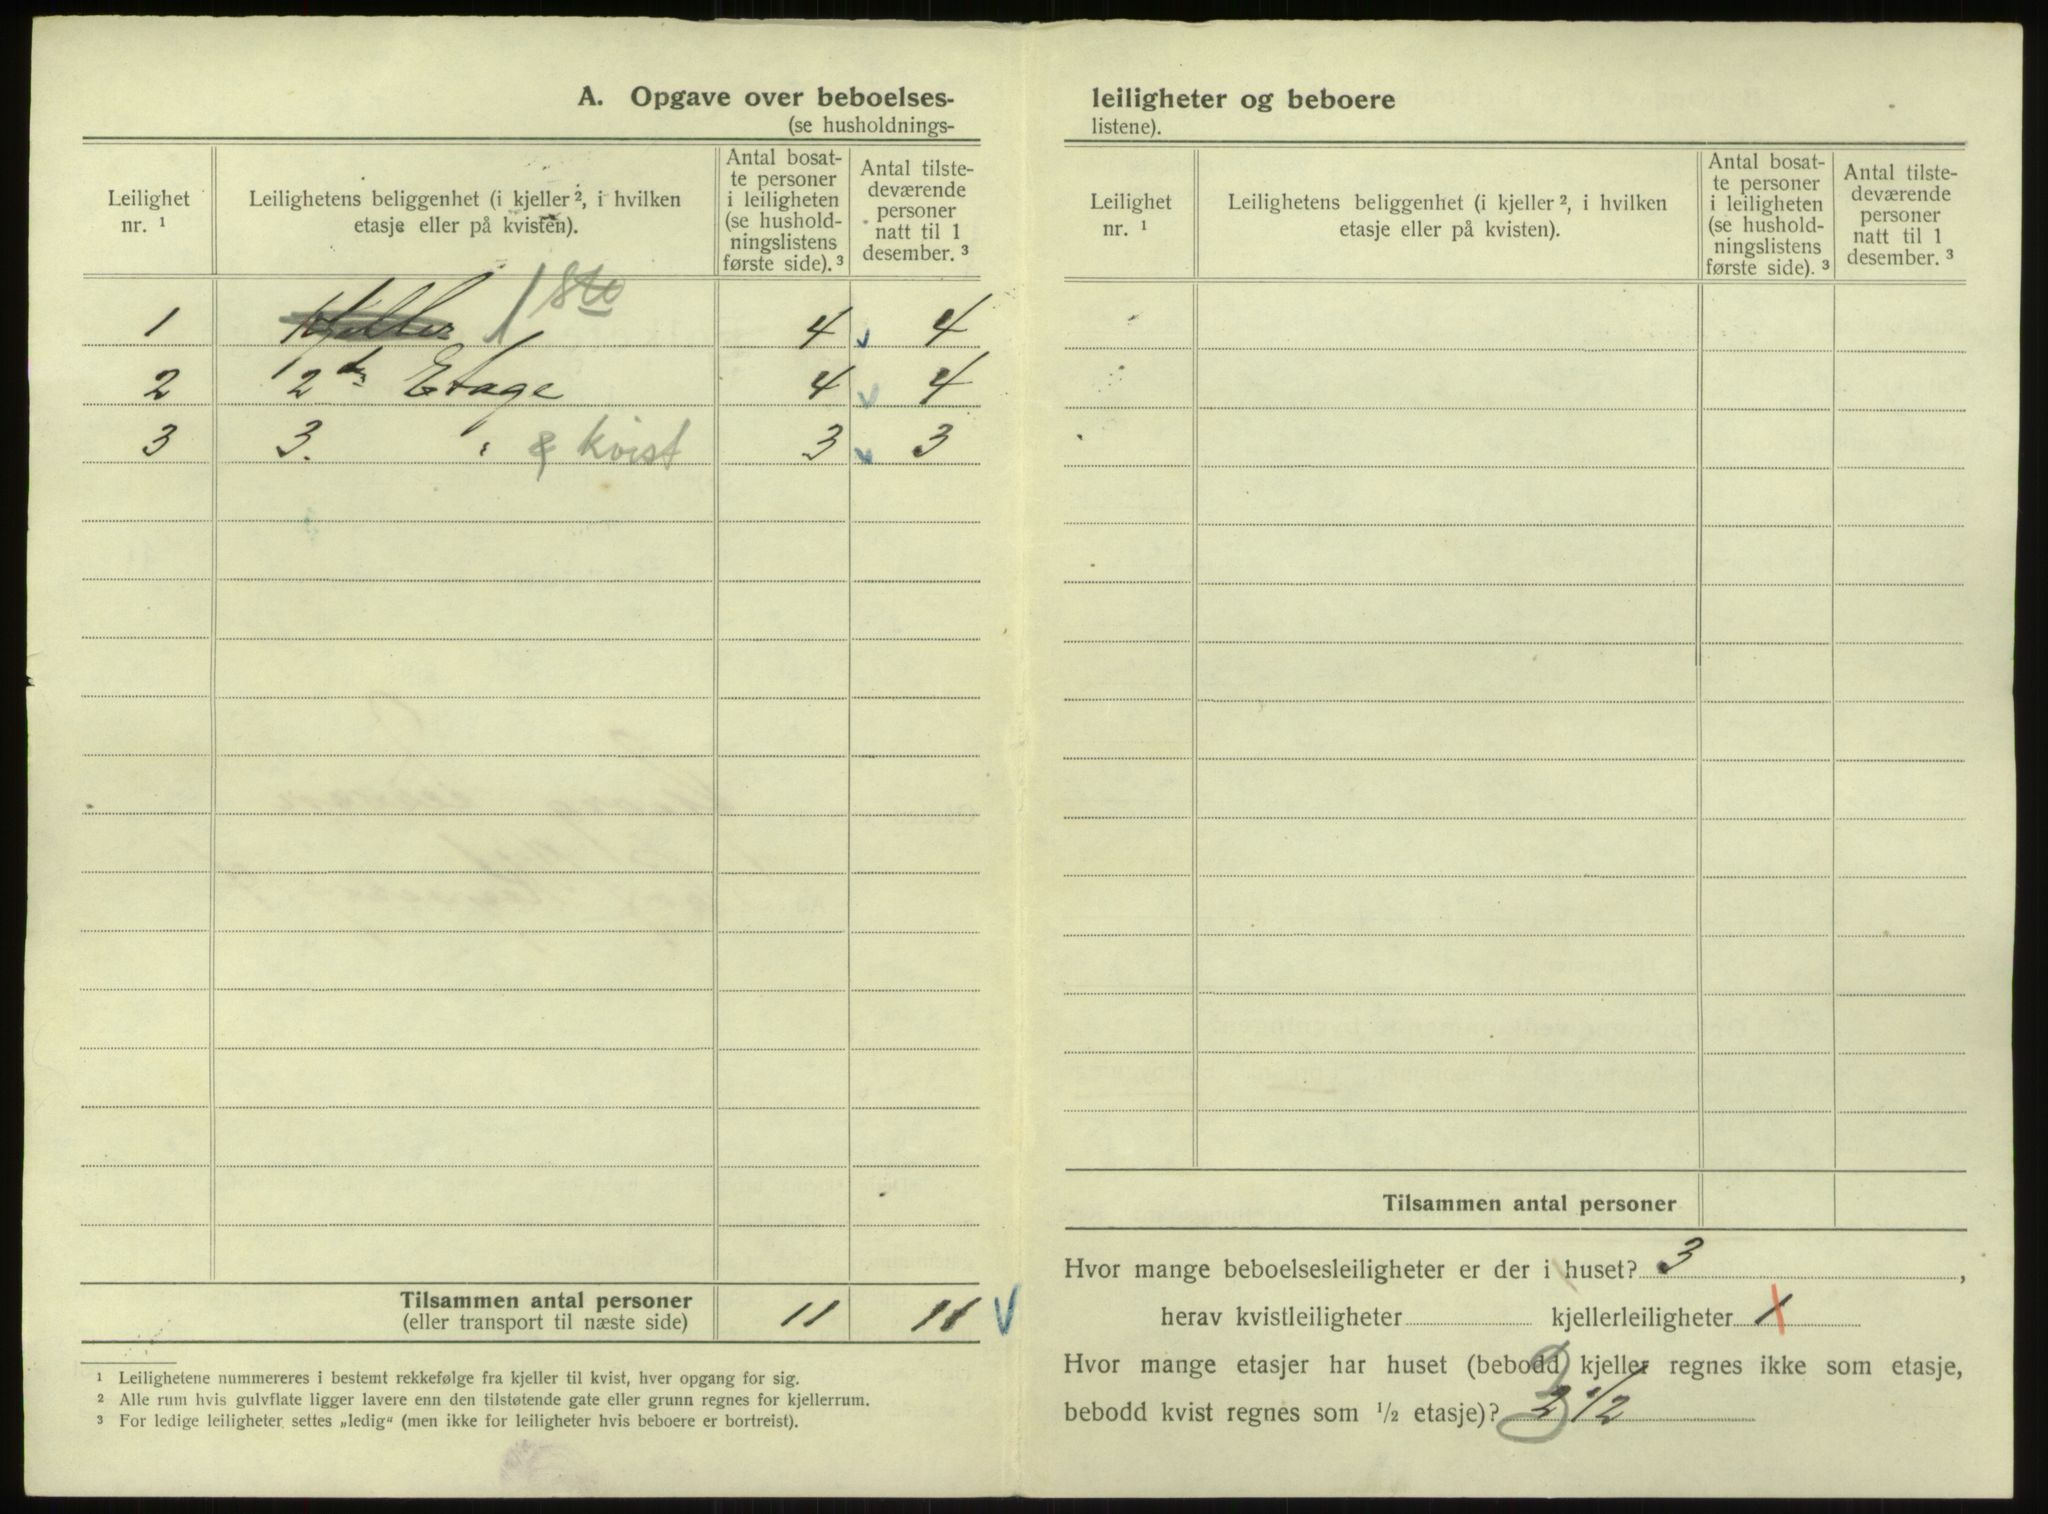 A. Opgave over beboelses-
(se husholdnings-
Leilighet nr. 1
Leilighetens beliggenhet (i kjeller 2, i hvilken etasje eller på kvisten).
Antal bosat-
te personer
i leiligheten
(se hushold-
ningslistens
første side). 3
Antal tilste-
deværende
personer
natt til 1
desember. 3
1 Kjeller 1ste 4 4
2 2den Etage 4 4
3 3. " & kvist 3 3
Tilsammen antal personer 11 11
(eller transport til næste side)
1 Leilighetene nummereres i bestemt rekkefølge fra kjeller til kvist, hver opgang for sig.
2 Alle rum hvis gulvflate ligger lavere enn den tilstøtende gate eller grunn regnes for kjellerrum.
3 For ledige leiligheter settes „ledig“ (men ikke for leiligheter hvis beboere er bortreist).
leiligheter og beboere
listene).
Leilighet nr. 1
Leilighetens beliggenhet (i kjeller 2, i hvilken etasje eller på kvisten).
Antal bosat-
te personer
i leiligheten
(se hushold-
ningslistens
første side). 3
Antal tilste-
deværende
personer
natt til 1
desember. 3
Tilsammen antal personer
Hvor mange beboelsesleiligheter er der i huset? 3,
herav kvistleiligheter kjellerleiligheter 1
Hvor mange etasjer har huset (bebodd kjeller regnes ikke som etasje,
bebodd kvist regnes som 1/2 etasje)? 2 1/2